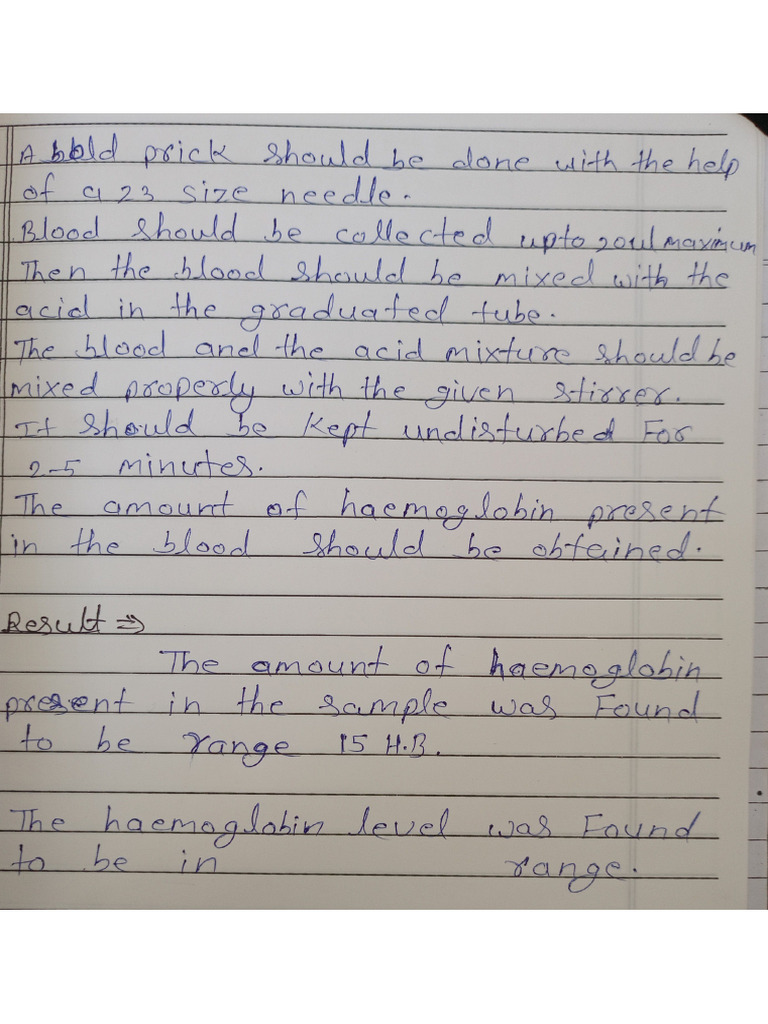 A bold prick should be done with the help
of a 23 size needle.
Blood should be collected upto 20ul maximum
Then the blood should be mixed with the
acid in the graduated tube.
The blood and the acid mixture should be
mixed properly with the given stirrer.
It should be kept undisturbed For
2-5 minutes.
The amount of haemoglobin present
in the blood should be obtained.
Result ⇒
The amount of haemoglobin
present in the sample was Found
to be range 15 H.B.
The haemoglobin level was Found
to be in range.